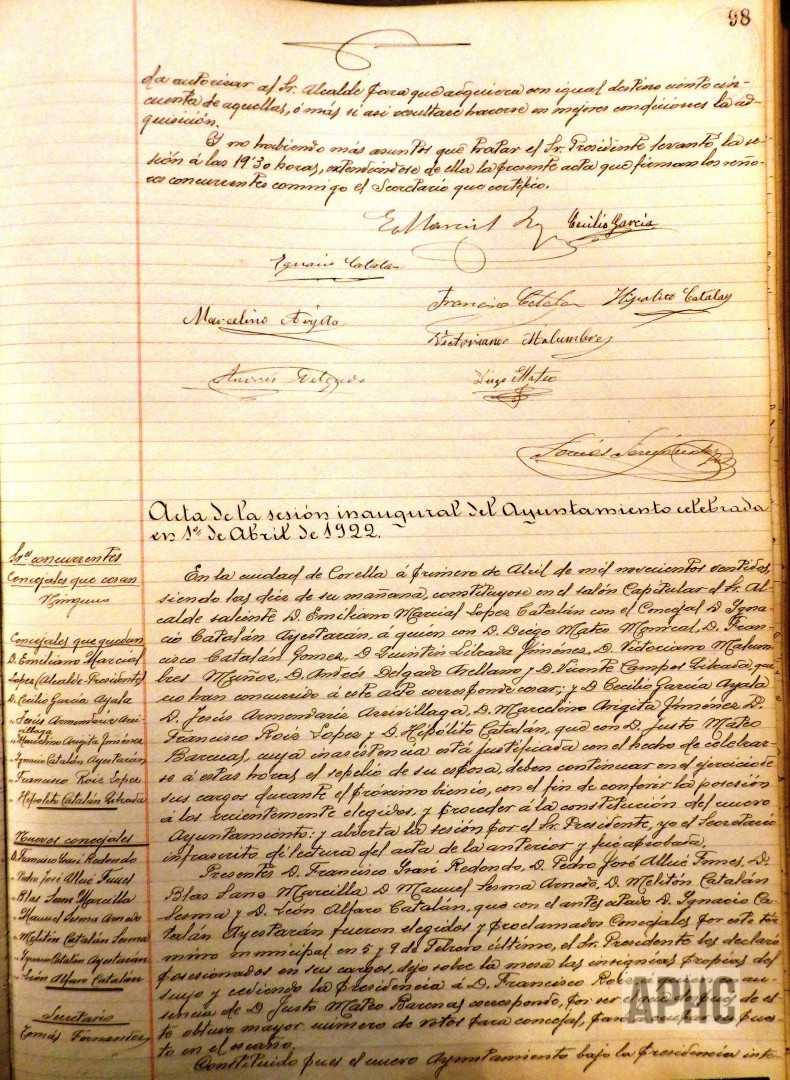 98
da autorizar al Sr. Alcalde para que adquiera con igual destino ciento cin-
cuenta de aquellas, ó más si asi resultare hacerse en mejores condiciones la ad-
quisición.
Y no habiendo más asuntos que tratar el Sr. Presidente levantó la se-
sión á las 19'30 horas, extendiéndose de ella la presente acta que firman los seño-
res concurrentes conmigo el Secretario que certifico.
E. Marcial Cecilio García
Ignacio Catalan
Francisco Catalan Hipolito Catalan
Marcelino Argita
Victoriano Malumbres
Andrés Delgado Diego Mateo
Tomás Fernandez
Acta de la sesión inaugural del Ayuntamiento celebrada
en 1º de Abril de 1922.
Sres concurrentes
Concejales que cesan
Ninguno
Concejales que quedan
D. Emiliano Marcial
Lopez (Alcalde-Presidente)
D. Cecilio García Ayala
" Jesús Armendariz Arri-
villaga
" Marcelino Argita Jiménez
" Ignacio Catalán Ayestarán
" Francisco Roiz Lopez
" Hipólito Catalán Liñada
Nuevos concejales
D. Francisco Ysasi Redondo
" Pedro José Allué
" Blas Sanz Marcilla
" Manuel Sesma Arnedo
" Melitón Catalán Sesma
" Ignacio Catalán Ayestarán
" León Alfaro Catalán
Secretario
Tomás Fernandez
En la ciudad de Corella á primero de Abril de mil novecientos ventidos,
siendo las diez de su mañana, constituyose en el salón Capitular el Sr. Al-
calde saliente D. Emiliano Marcial Lopez Catalán con el Concejal D. Igna-
cio Catalán Ayestarán, á quien con D. Diego Mateo Monreal, D. Fran-
cisco Catalán Gomez, D. Quintín Jiménez, D. Victoriano Malum-
bres Muñoz, D. Andrés Delgado Arellano y D. Vicente Campos que
no han concurrido á este acto corresponde cesar; y D. Cecilio García Ayala
D. Jesús Armendariz Arrivillaga, D. Marcelino Argita Jiménez D.
Francisco Roiz Lopez y D. Hipólito Catalán, que con D. Justo Mateo
Barcenas, cuya inasistencia está justificada con el hecho de celebrar-
se á estas horas el sepelio de su esposa, deben continuar en el ejercicio de
sus cargos durante el próximo bienio, con el fin de conferir la posesión
á los recientemente elegidos, y proceder á la constitución del nuevo
Ayuntamiento: y abierta la sesión por el Sr. Presidente, yo el Secretario
infrascrito dí lectura del acta de la anterior y fué aprobada.
Presentes D. Francisco Ysasi Redondo, D. Pedro José Allué D.
Blas Sanz Marcilla D. Manuel Sesma Arnedo, D. Melitón Catalán
Sesma y D. León Alfaro Catalán, que con el antes citado D. Ignacio Ca-
talán Ayestarán fueron elegidos y proclamados Concejales por este tér-
mino municipal en 5 y 9 de Febrero último, el Sr. Presidente les declaró
posesionados en sus cargos, dejó sobre la mesa las insignias propias del
suyo y cediendo la Presidencia á D. Francisco Roiz au-
sencia de D. Justo Mateo Barcenas corresponde, por ser el que después de es-
to obtuvo mayor número de votos para concejal, pues-
to en el escaño.
Constituido pues el nuevo Ayuntamiento bajo la Presidencia inte-
APHC